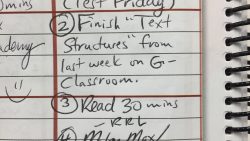 0mins
(Test Friday)
② Finish "Text
Structures" from
last week on G-
Classroom.
ademy
③ Read 30 mins
- RRL